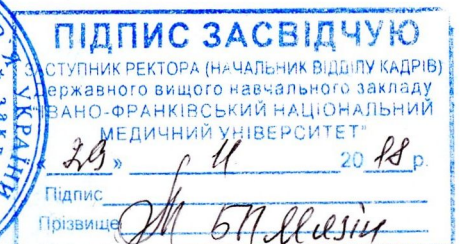 ПІДПИС ЗАСВІДЧУЮ
ЗАСТУПНИК РЕКТОРА (НАЧАЛЬНИК ВІДДІЛУ КАДРІВ)
Державного вищого навчального закладу
ІВАНО-ФРАНКІВСЬКИЙ НАЦІОНАЛЬНИЙ
МЕДИЧНИЙ УНІВЕРСИТЕТ"
« 29 » 11 2018 р.
Підпис
Прізвище
УКРАЇНИ